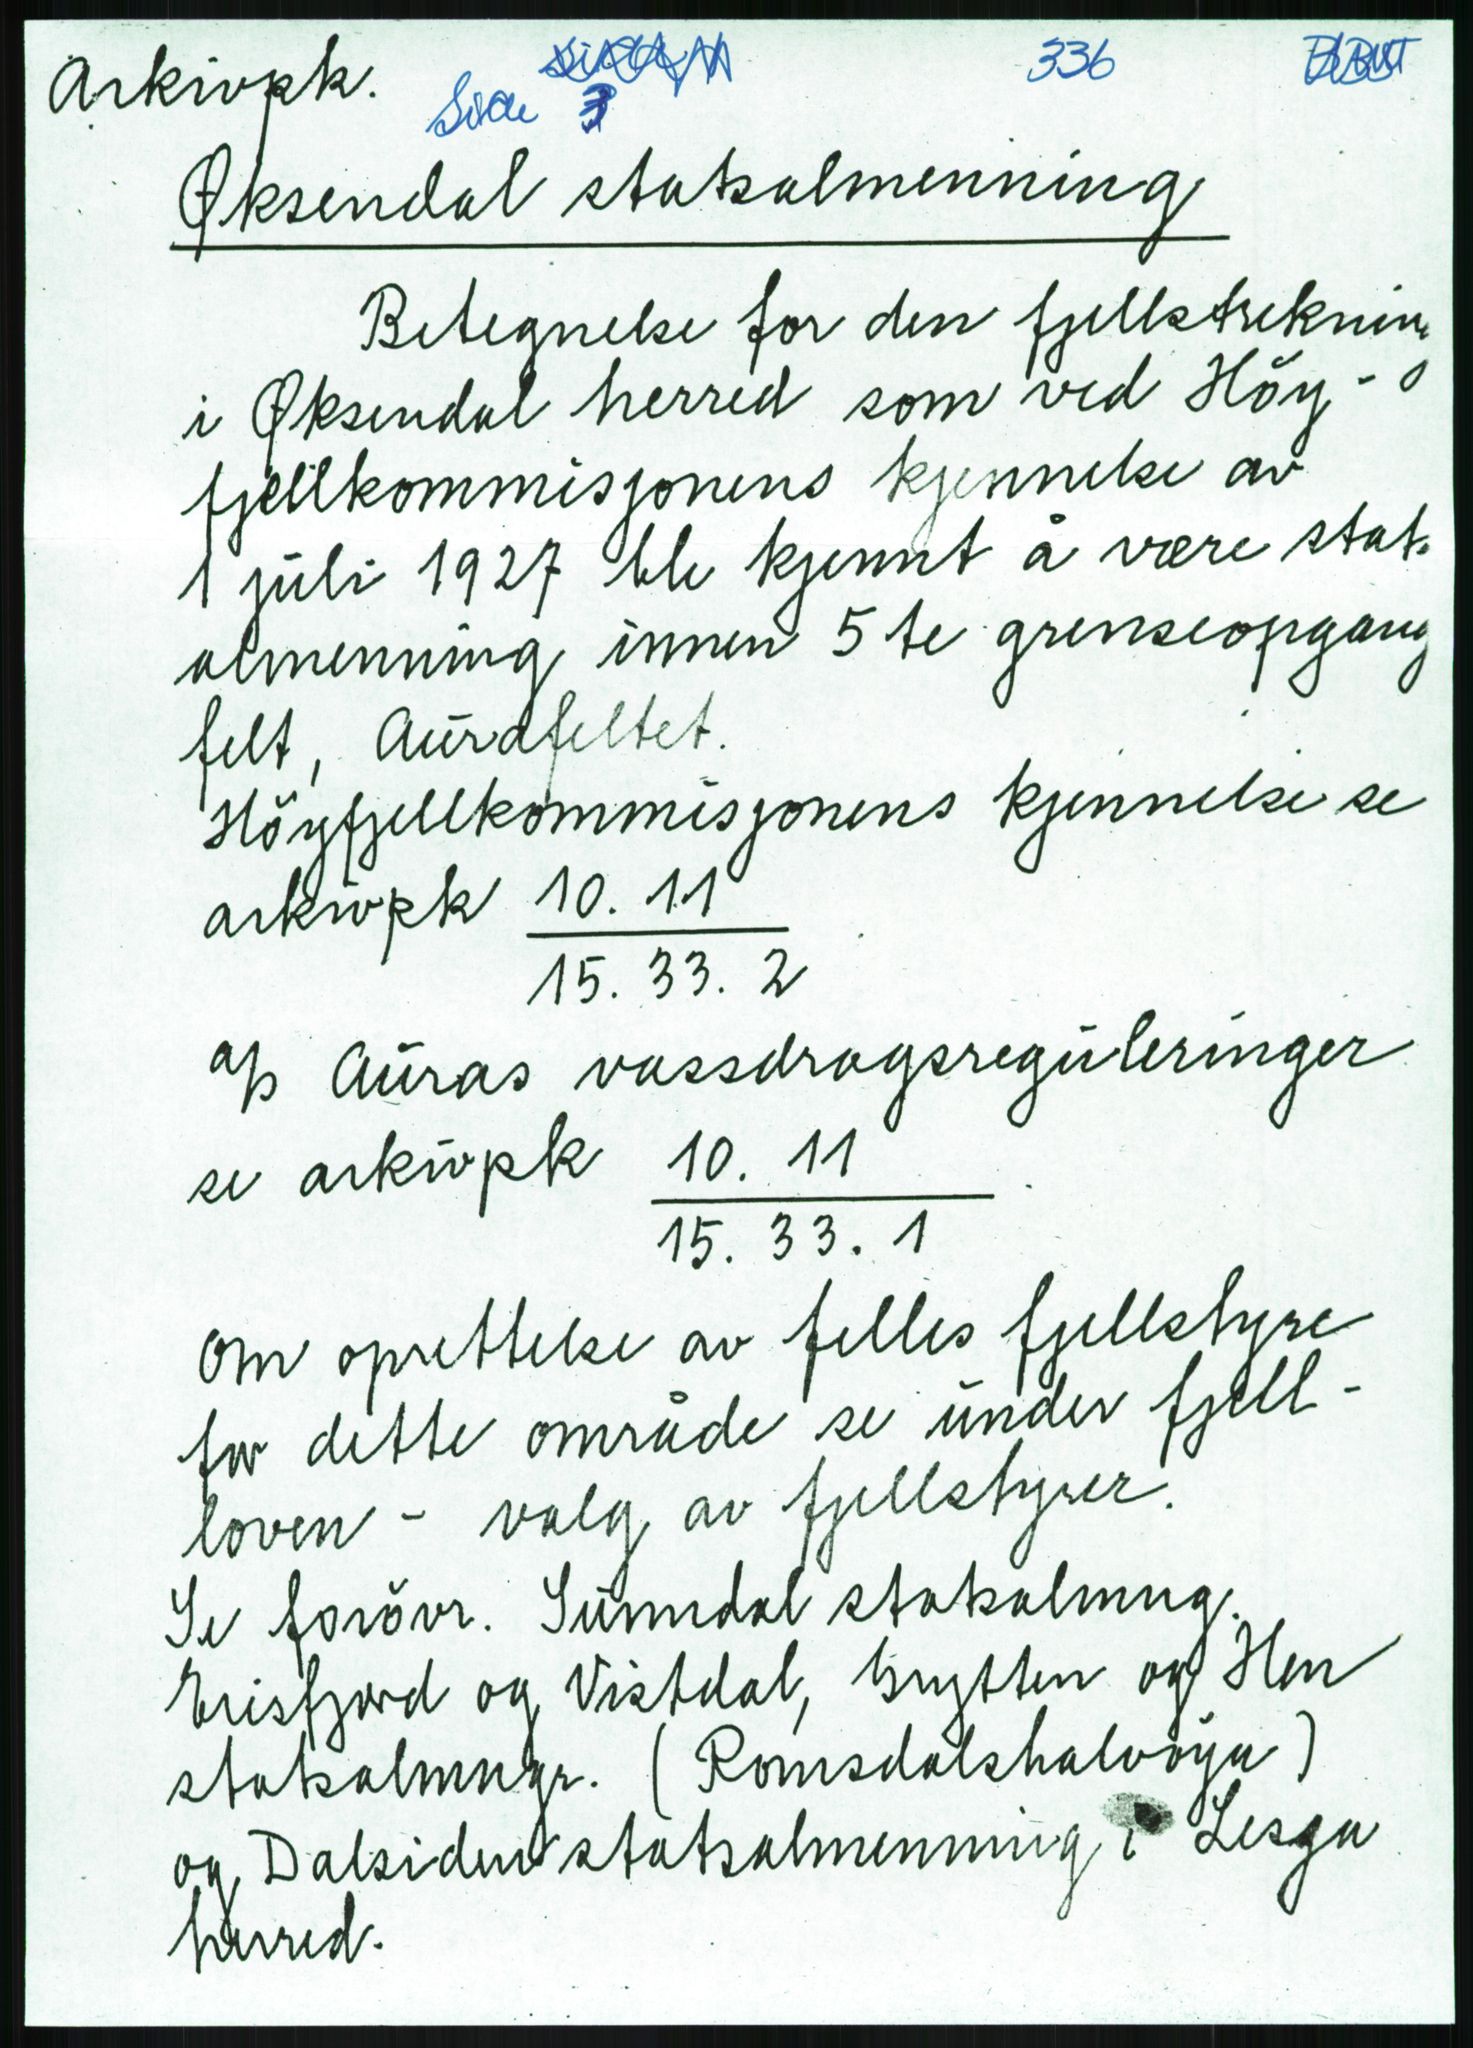 Arkivpk.
Side 3
336
Øksendal statsalmenning
Betegnelse for den fjellstrekning
i Øksendal herred som ved Höy-
fjellkommisjonens kjennelse av
1 juli 1927 ble kjennt å være stats
almenning innen 5te grenseopgang
felt, Aurafeltet.
Höyfjellkommisjonens kjennelse se
arkivpk 10. 11
15. 33. 2
a/s Auras vassdragsreguleringer
se arkivpk 10. 11
15. 33. 1
Om oprettelse av felles fjellstyre
for dette område se under fjell-
loven - valg av fjellstyrer.
Se forövr. Sunndal statsalmng.
Erisfjord og Vistdal, Grytten og Hen
statsalmngr. (Romsdalshalvöya)
og Dalsiden statsalmenning i Lesja
herred.